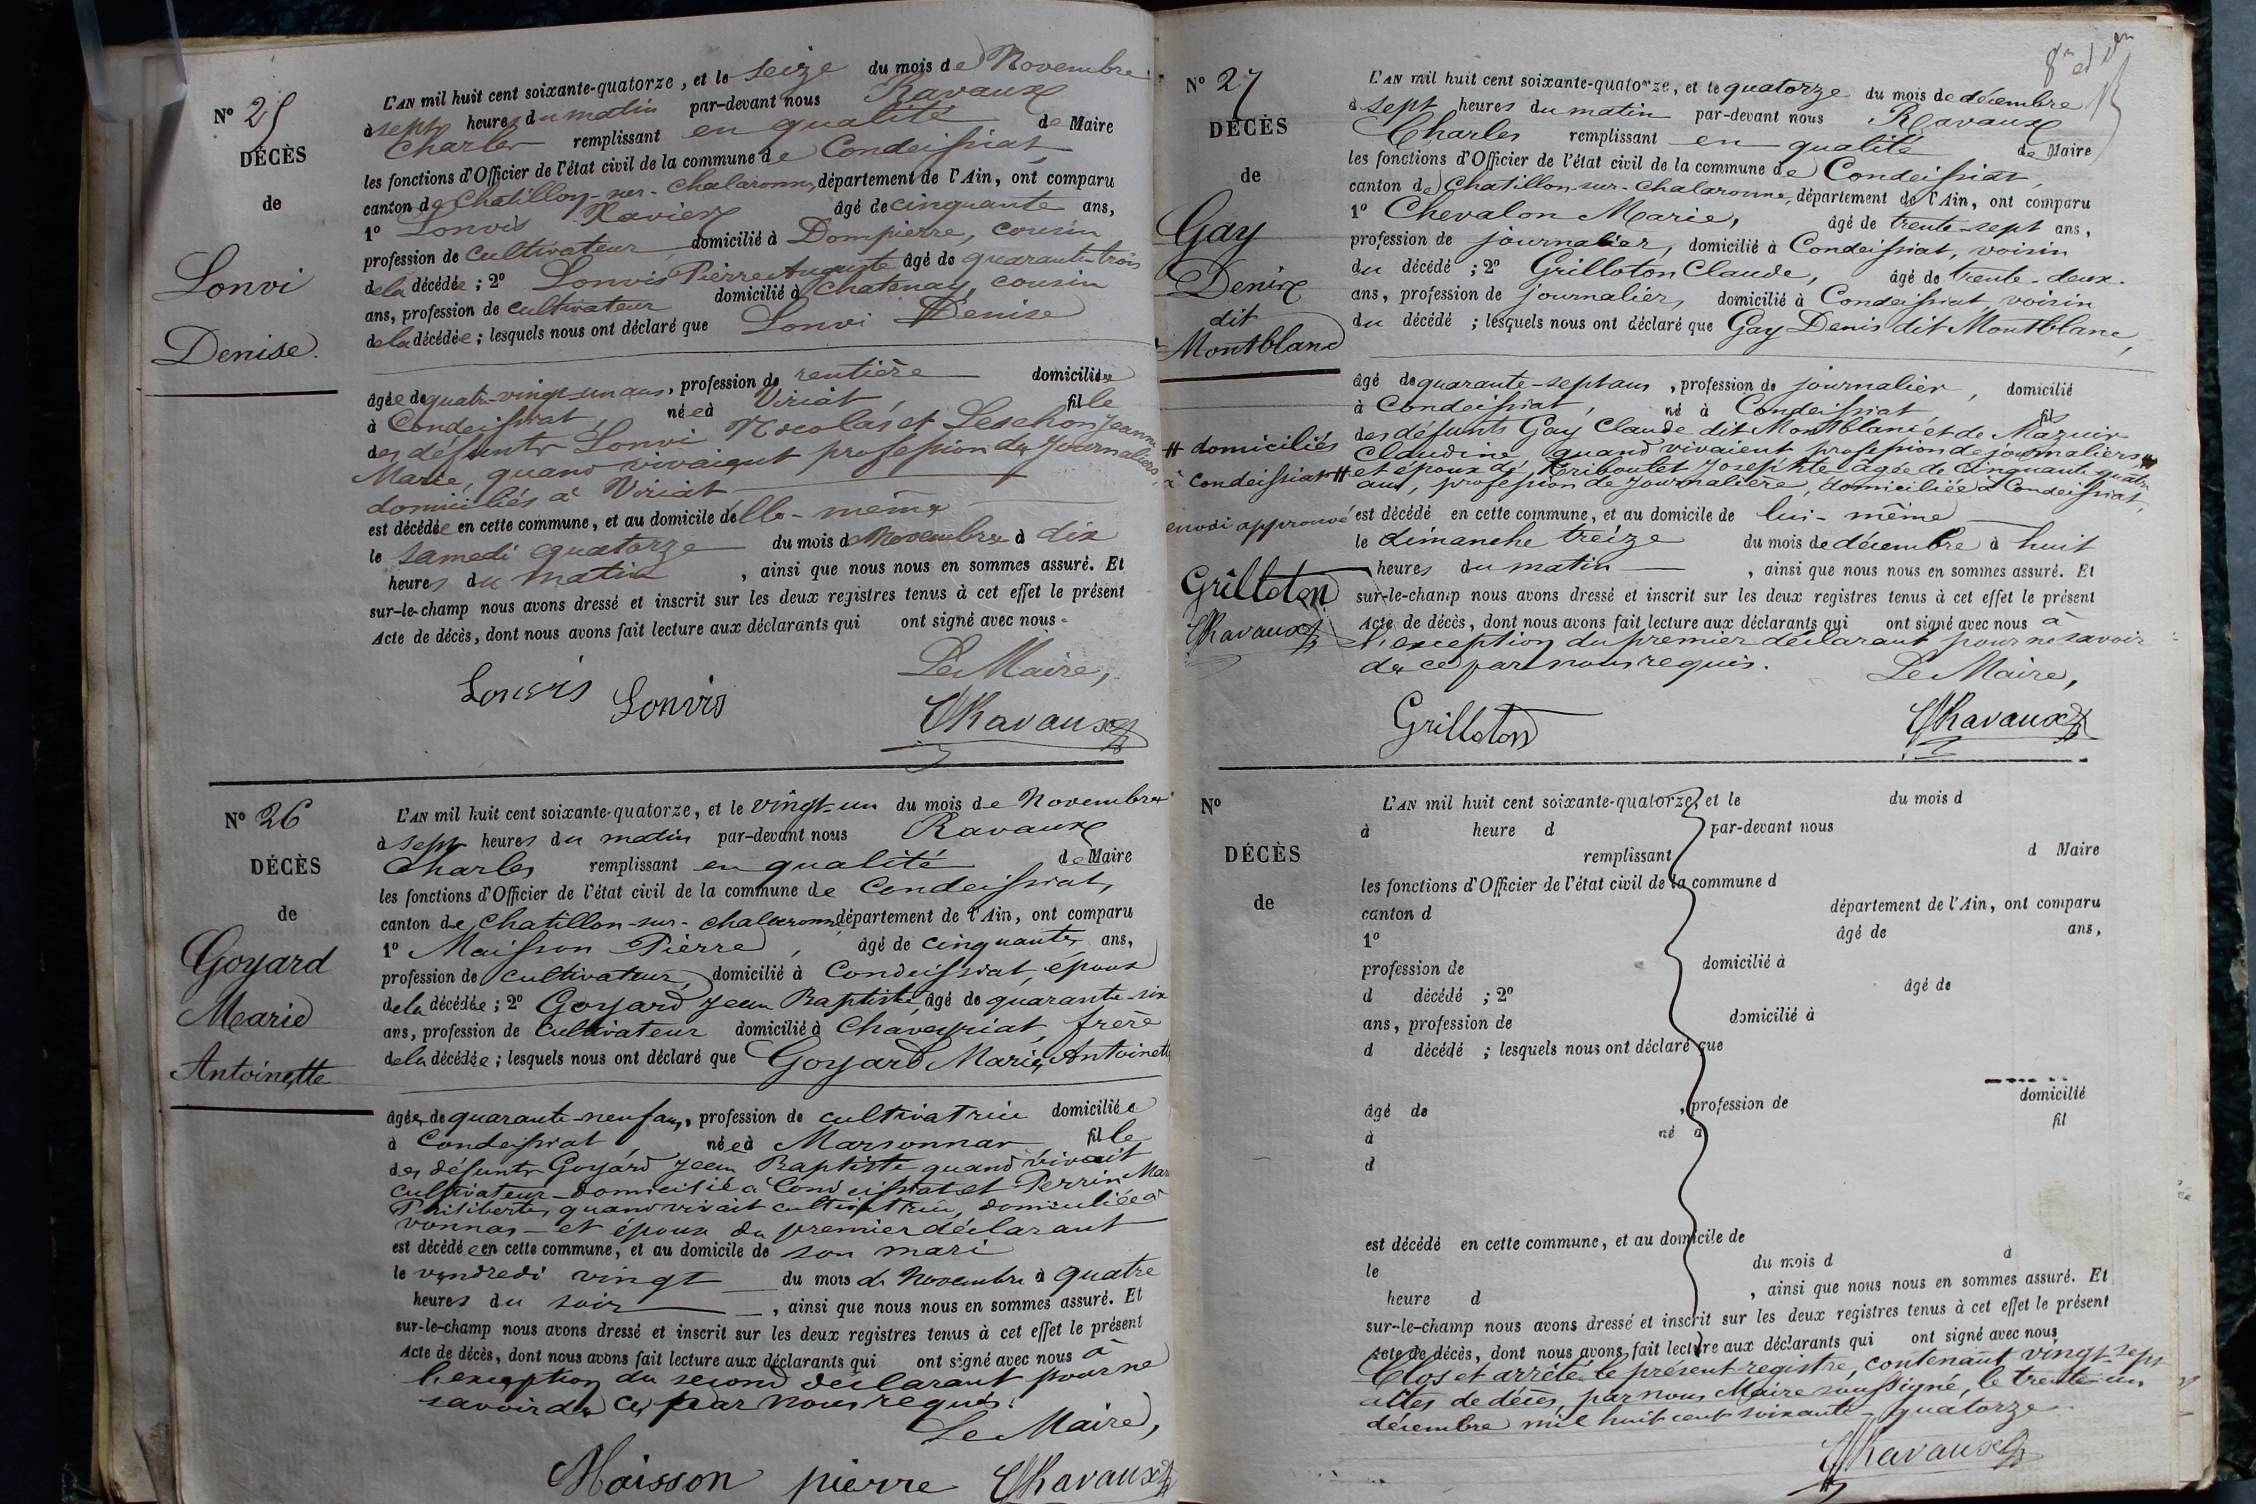 N° 25
DÉCÈS
de
Lonvi
Denise.
L'AN mil huit cent soixante-quatorze, et le seize du mois de Novembre
à sept heures du matin par-devant nous Ravaux
Charles remplissant en qualité de Maire
les fonctions d'Officier de l'état civil de la commune de Condeissiat
canton de Chatillon-sur-Chalaronne, département de l'Ain, ont comparu
1° Lonvis Xavier âgé de cinquante ans,
profession de cultivateur, domicilié à Dompierre, cousin
de la décédée; 2° Lonvis Pierre Auguste âgé de quarante-trois
ans, profession de cultivateur domicilié à Chatenay, cousin
de la décédée; lesquels nous ont déclaré que Lonvi Denise
âgée de quatr-vingt-un ans, profession de rentière domiciliée
à Condeissiat, née à Viriat, fille
des défunts Lonvi Nocolas et Leschon Jeanne
Marie, quand vivaient profession de journaliers,
domiciliés à Viriat
est décédée en cette commune, et au domicile d'elle-même
le samedi quatorze du mois de Novembre à dix
heures du matin, ainsi que nous nous en sommes assuré. Et
sur-le-champ nous avons dressé et inscrit sur les deux registres tenus à cet effet le présent
Acte de décès, dont nous avons fait lecture aux déclarants qui ont signé avec nous.
Le Maire,
Lonvis Lonvis Ravaux
N° 26
DÉCÈS
de
Goyard
Marie
Antoinette
L'AN mil huit cent soixante-quatorze, et le vingt-un du mois de Novembre
à sept heures du matin par-devant nous Ravaux
Charles remplissant en qualité de Maire
les fonctions d'Officier de l'état civil de la commune de Condeissiat,
canton de Chatillon-sur-Chalaronne département de l'Ain, ont comparu
1° Maisson Pierre, âgé de cinquante ans,
profession de cultivateur, domicilié à Condeissiat, époux
de la décédée; 2° Goyard Jean Baptiste, âgé de quarante-six
ans, profession de cultivateur domicilié à Chaveyriat, frère
de la décédée; lesquels nous ont déclaré que Goyard Marie Antoinette
âgée de quarante-neuf ans, profession de cultivatrice domiciliée
à Condeissiat, née à Marsonnas fille
des défunts Goyard Jean Baptiste quand vivait
cultivateur domicilié à Condeissiat et Perrin Mar
Philiberte, quand vivait cultivatrice, domiciliée à
vonnas et époux du premier déclarant
est décédée en cette commune, et au domicile de son mari
le vendredi vingt du mois de Novembre à quatre
heures du soir, ainsi que nous nous en sommes assuré. Et
sur-le-champ nous avons dressé et inscrit sur les deux registres tenus à cet effet le présent
Acte de décès, dont nous avons fait lecture aux déclarants qui ont signé avec nous à
l'exception du second déclarant pour ne
savoir de ce par nous requis.
Le Maire,
Maisson pierre Ravaux
N° 27
DÉCÈS
de
Gay
Denis
dit
Montblanc
L'AN mil huit cent soixante-quatorze, et le quatorze du mois de décembre
à sept heures du matin par-devant nous Ravaux
Charles remplissant en qualité de Maire
les fonctions d'Officier de l'état civil de la commune de Condeissiat,
canton de Chatillon-sur-Chalaronne, département de l'Ain, ont comparu
1° Chevalon Marie, âgé de trente-sept ans,
profession de journalier, domicilié à Condeissiat, voisin
du décédé; 2° Grilloton Claude, âgé de trente-deux
ans, profession de journalier, domicilié à Condeissiat, voisin
du décédé; lesquels nous ont déclaré que Gay Denis dit Montblanc,
âgé de quarante-sept ans, profession de journalier, domicilié
à Condeissiat, né à Condeissiat, fils
des défunts Gay Claude dit Montblanc et de Mazuir
Claudine, quand vivaient profession de journaliers #
et époux de Josephte âgée de cinquante quatre
ans, profession de journalière, domiciliée à Condeissiat,
# domiciliés
à Condeissiat #
envoi approuvé
Grilloton
Ravaux
est décédé en cette commune, et au domicile de lui-même
le dimanche treize du mois de décembre à huit
heures du matin, ainsi que nous nous en sommes assuré. Et
sur-le-champ nous avons dressé et inscrit sur les deux registres tenus à cet effet le présent
Acte de décès, dont nous avons fait lecture aux déclarants qui ont signé avec nous à
l'exception du premier déclarant pour ne savoir
de ce par nous requis.
Le Maire,
Grilloton Ravaux
N°
DÉCÈS
de
L'AN mil huit cent soixante-quatorze, et le du mois d
à heure d par-devant nous
remplissant d Maire
les fonctions d'Officier de l'état civil de la commune d
canton d département de l'Ain, ont comparu
1° âgé de ans,
profession de domicilié à
d décédé ; 2° âgé de
ans, profession de domicilié à
d décédé ; lesquels nous ont déclaré que
âgé de , profession de domicilié
à né à fil
d
est décédé en cette commune, et au domicile de
le du mois d à
heure d , ainsi que nous nous en sommes assuré. Et
sur-le-champ nous avons dressé et inscrit sur les deux registres tenus à cet effet le présent
Acte de décès, dont nous avons fait lecture aux déclarants qui ont signé avec nous
Clos et arrêté le présent registre, contenant vingt-sept
actes de décès, par nous Maire soussigné, le trente-un
décembre mil huit cent soixante-quatorze
Ravaux